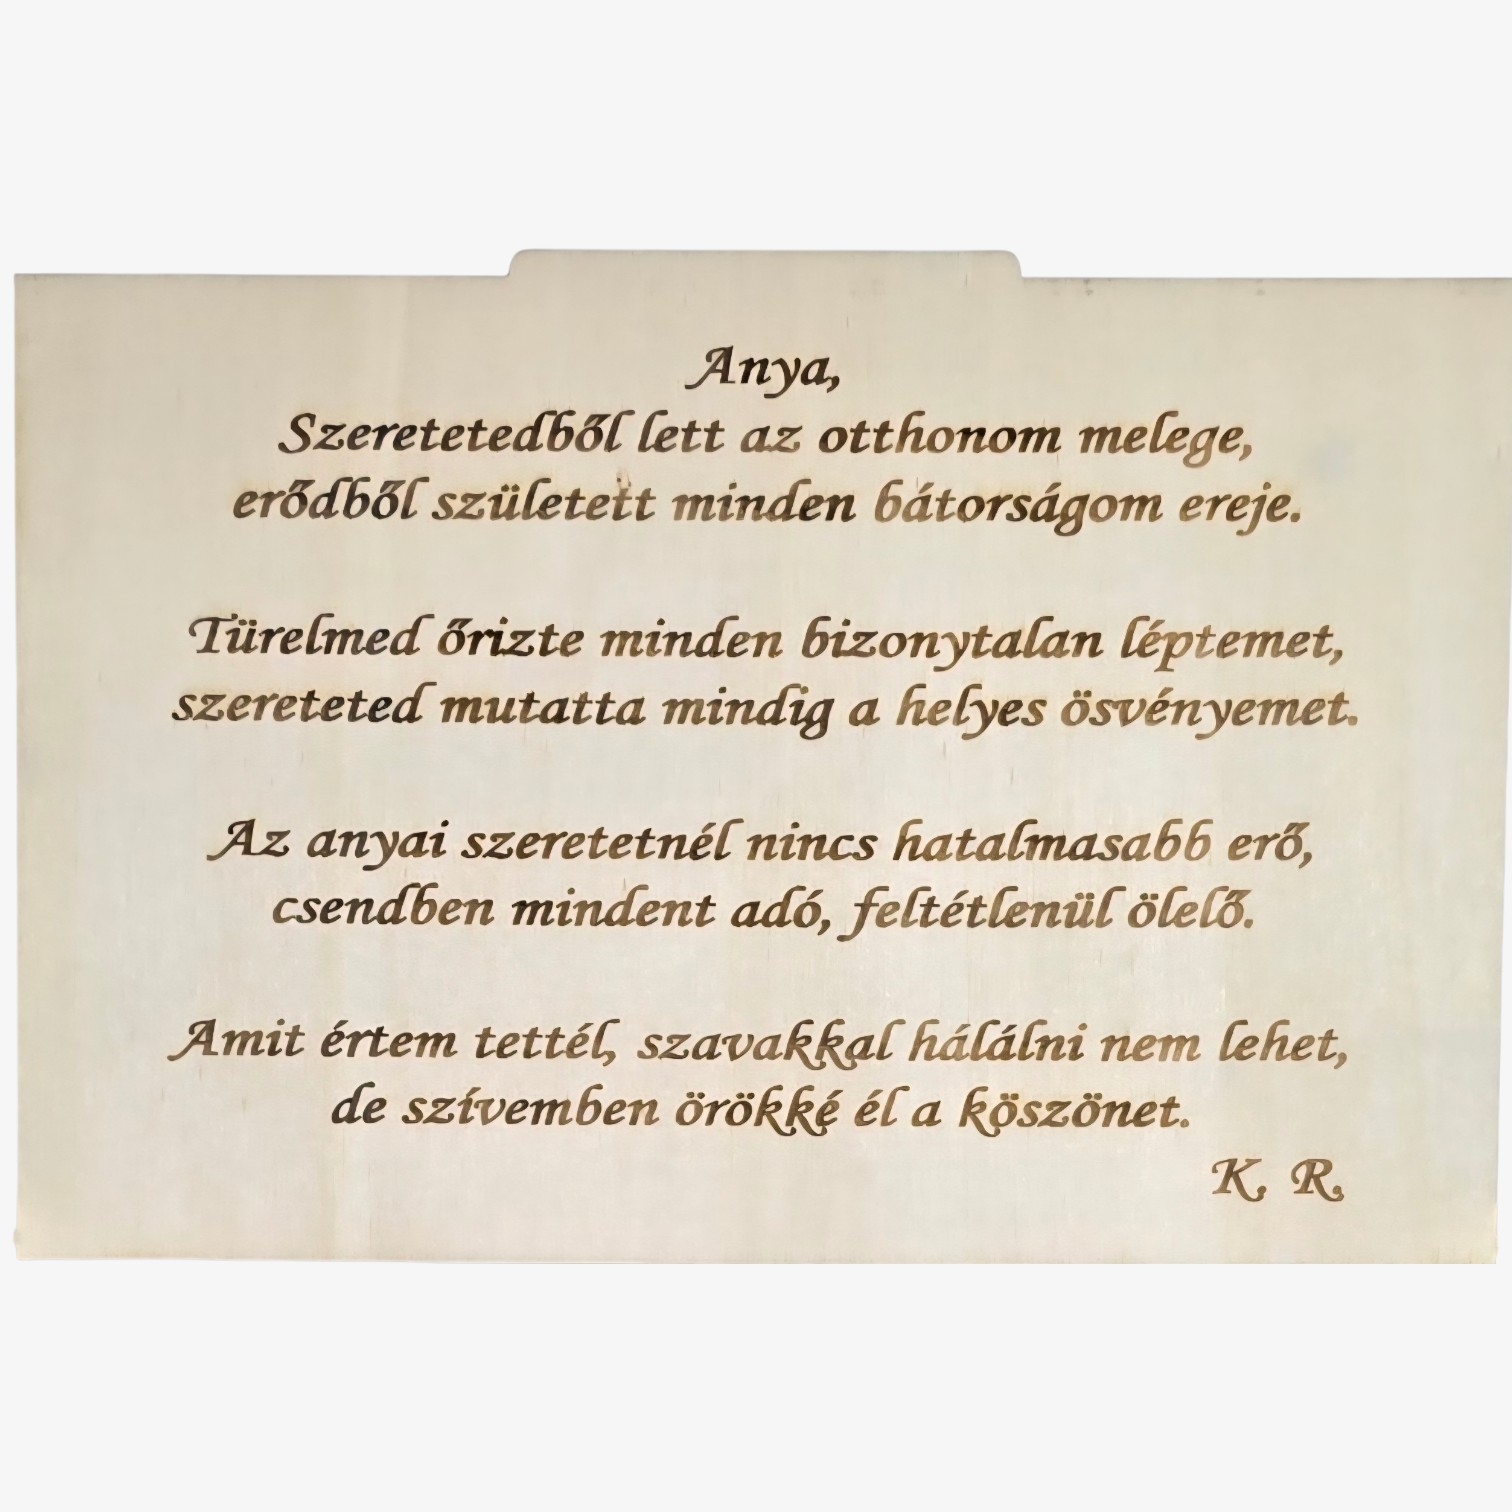 Anya,
Szeretetedből lett az otthonom melege,
erődből született minden bátorságom ereje.
Türelmed őrizte minden bizonytalan léptemet,
szereteted mutatta mindig a helyes ösvényemet.
Az anyai szeretetnél nincs hatalmasabb erő,
csendben mindent adó, feltétlenül ölelő.
Amit értem tettél, szavakkal hálálni nem lehet,
de szívemben örökké él a köszönet.
K. R.